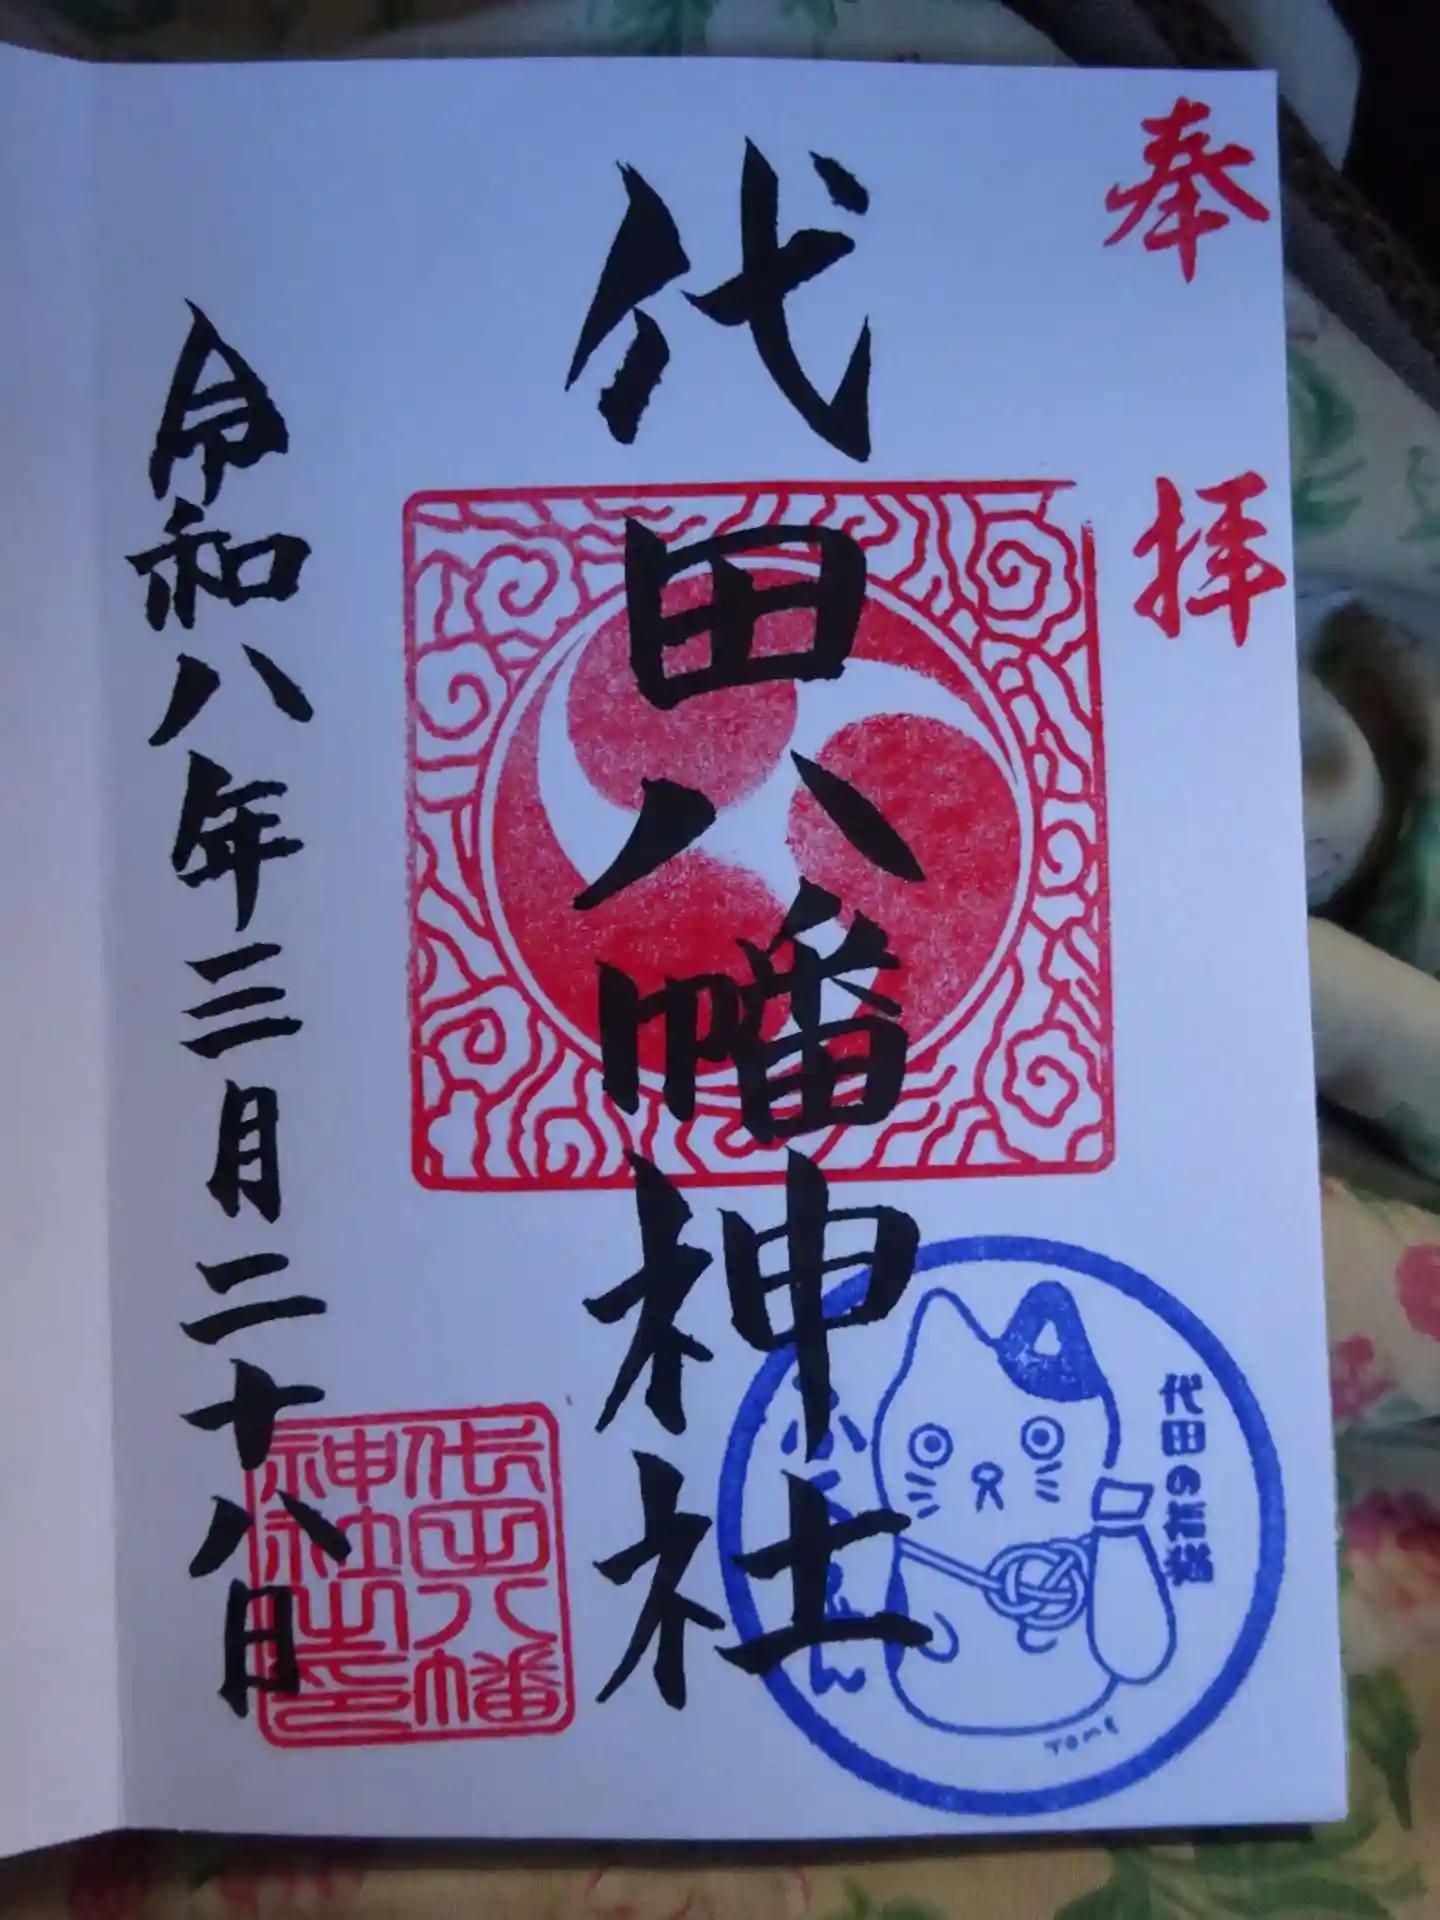 奉拝
代田八幡神社
令和八年三月二十八日
代田八幡
神社之印
代田の花
ん
TOME